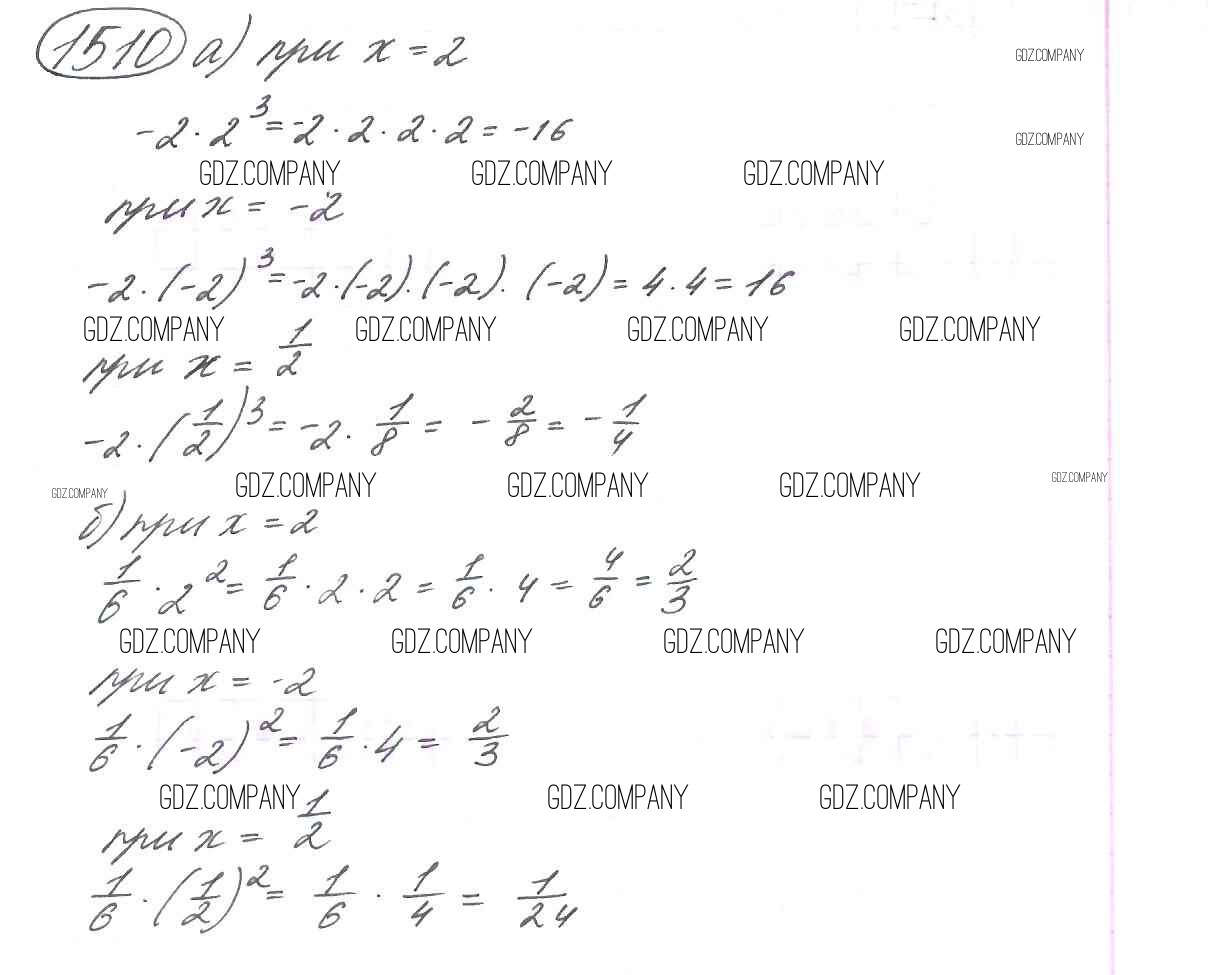 1510 а) при x = 2
GDZ.COMPANY
-2 · 2³ = -2 · 2 · 2 · 2 = -16
GDZ.COMPANY
GDZ.COMPANY GDZ.COMPANY GDZ.COMPANY
при x = -2
-2 · (-2)³ = -2 · (-2) · (-2) · (-2) = 4 · 4 = 16
GDZ.COMPANY GDZ.COMPANY GDZ.COMPANY GDZ.COMPANY
при x = 1/2
-2 · (1/2)³ = -2 · 1/8 = - 2/8 = - 1/4
GDZ.COMPANY GDZ.COMPANY GDZ.COMPANY GDZ.COMPANY GDZ.COMPANY
б) при x = 2
1/6 · 2² = 1/6 · 2 · 2 = 1/6 · 4 = 4/6 = 2/3
GDZ.COMPANY GDZ.COMPANY GDZ.COMPANY GDZ.COMPANY
при x = -2
1/6 · (-2)² = 1/6 · 4 = 2/3
GDZ.COMPANY GDZ.COMPANY GDZ.COMPANY
при x = 1/2
1/6 · (1/2)² = 1/6 · 1/4 = 1/24